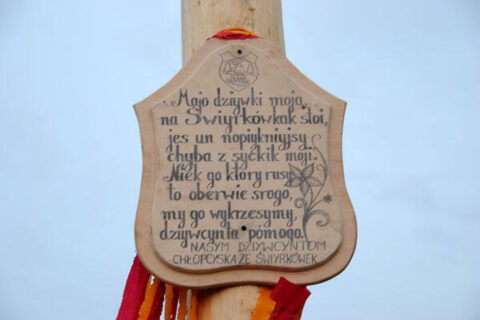 Majo dziywki moja,
na Świyrkówkak stoi,
jes un nopiykniyjsy
chyba z syćkik moji.
Niek go ktory rusy
to oberwie srogo,
my go wykrzesymy,
dziywcynta pómogą.
NASYM DZIYWCYNTOM
CHŁOPCYSKA ZE ŚWIYRKÓWEK